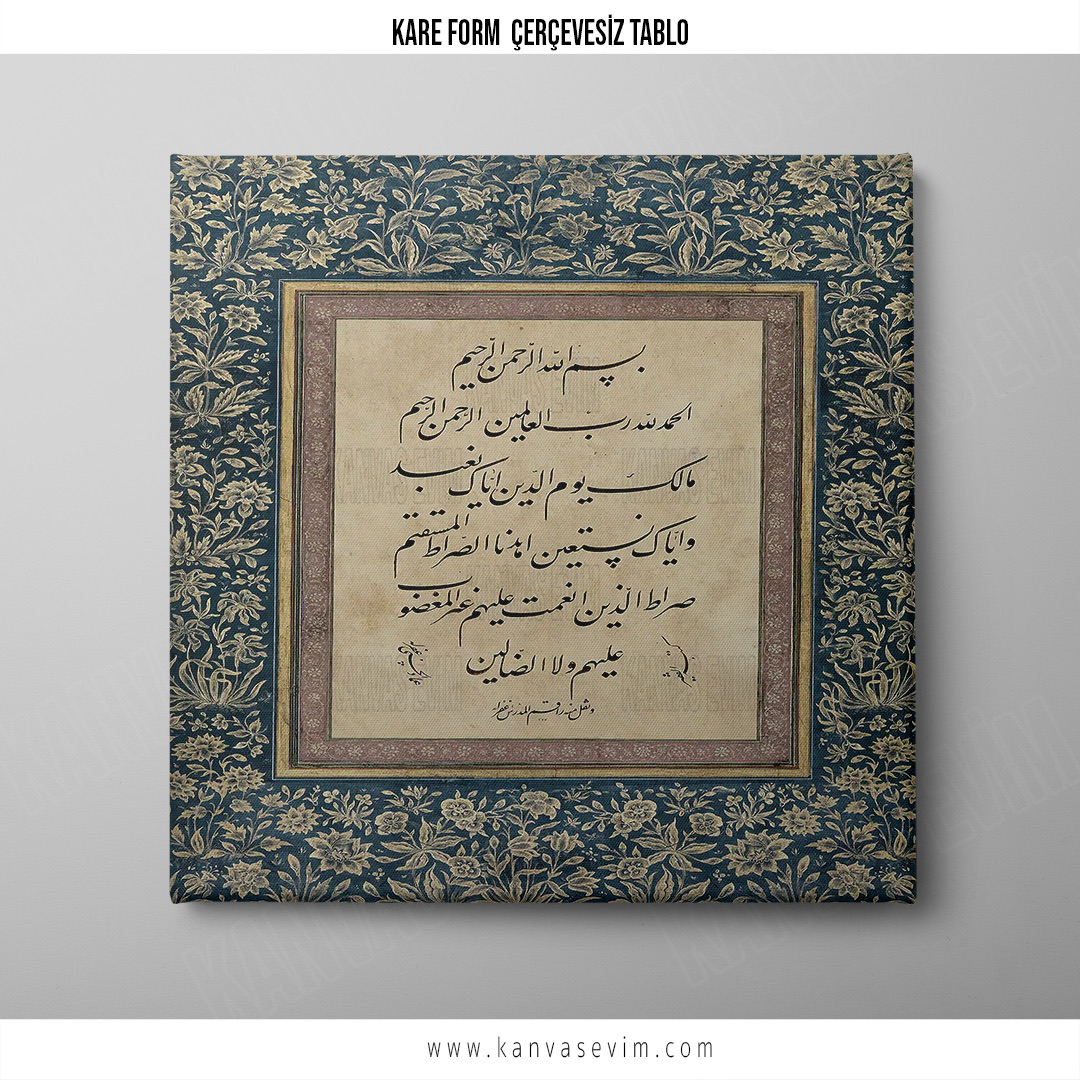 KARE FORM ÇERÇEVESİZ TABLO
بسم الله الرحمن الرحيم
الحمد لله رب العالمين الرحمن الرحيم
مالك يوم الدين اياك نعبد
واياك نستعين اهدنا الصراط المستقيم
صراط الذين انعمت عليهم غير المغضوب
عليهم ولا الضالين
www.kanvasevim.com